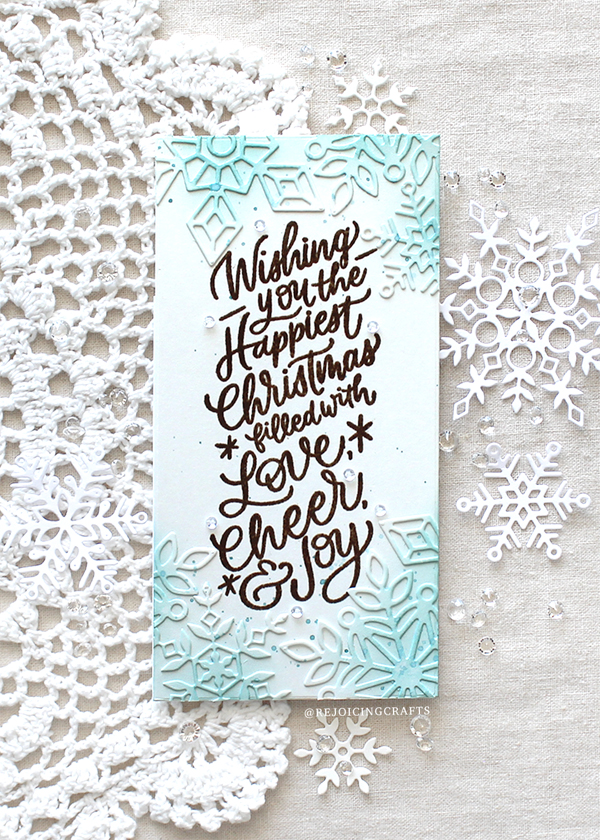 Wishing
you the
Happiest
Christmas
filled with
Love,
Cheer,
& Joy
@REJOICINGCRAFTS